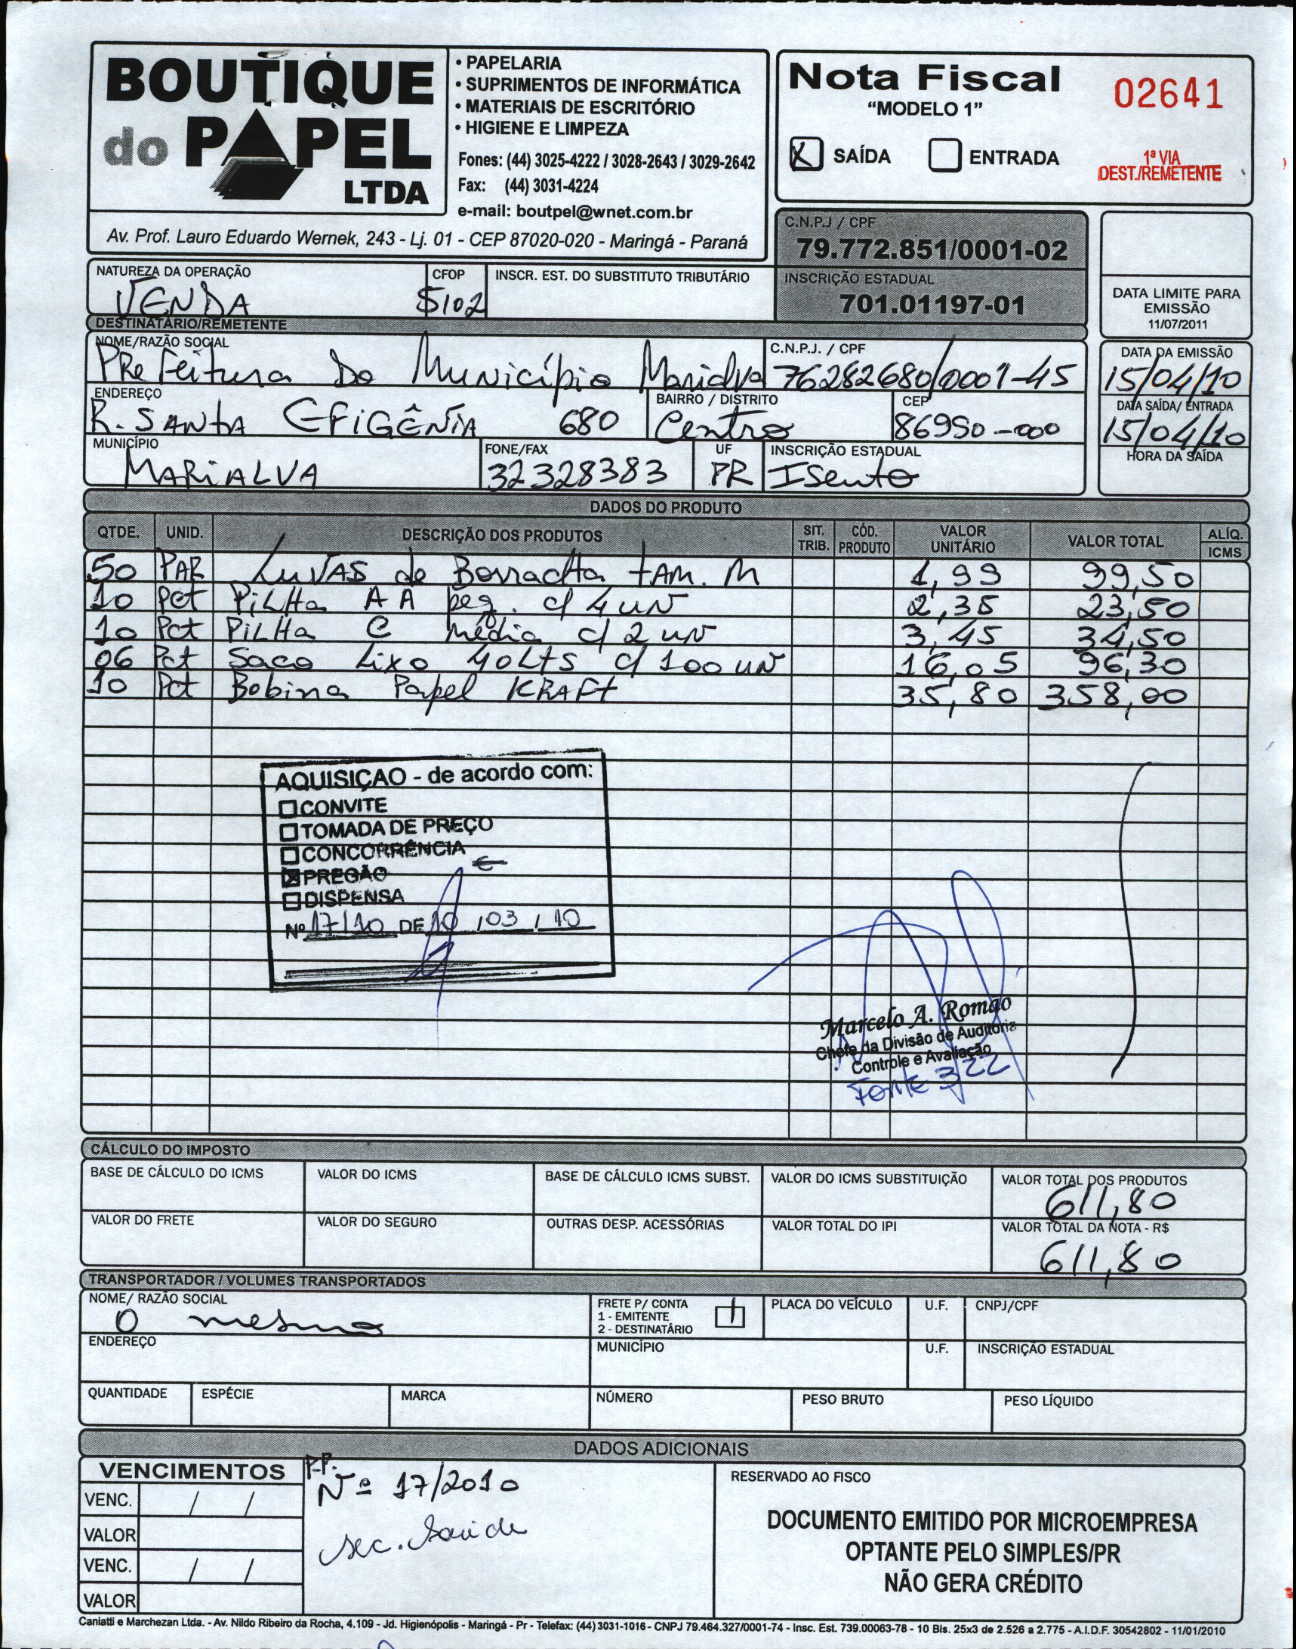 BOUTIQUE
do PAPEL
LTDA
• PAPELARIA
• SUPRIMENTOS DE INFORMÁTICA
• MATERIAIS DE ESCRITÓRIO
• HIGIENE E LIMPEZA
Fones: (44) 3025-4222 / 3028-2643 / 3029-2642
Fax: (44) 3031-4224
e-mail: boutpel@wnet.com.br
Av. Prof. Lauro Eduardo Wernek, 243 - Lj. 01 - CEP 87020-020 - Maringá - Paraná
Nota Fiscal
"MODELO 1"
02641
X SAÍDA ENTRADA
1ª VIA
DEST./REMETENTE
C.N.P.J / CPF
79.772.851/0001-02
INSCRIÇÃO ESTADUAL
701.01197-01
DATA LIMITE PARA
EMISSÃO
11/07/2011
NATUREZA DA OPERAÇÃO CFOP INSCR. EST. DO SUBSTITUTO TRIBUTÁRIO
VENDA 5102
DESTINATÁRIO/REMETENTE
NOME/RAZÃO SOCIAL C.N.P.J. / CPF DATA DA EMISSÃO
Prefeitura Do Município Marialva 76282680/0001-45 15/04/10
ENDEREÇO BAIRRO / DISTRITO CEP DATA SAÍDA/ ENTRADA
R. SANTA EFIGÊNIA 680 Centro 86990-000 15/04/10
MUNICÍPIO FONE/FAX UF INSCRIÇÃO ESTADUAL HORA DA SAÍDA
MARIALVA 32328383 PR Isento
DADOS DO PRODUTO
QTDE. UNID. DESCRIÇÃO DOS PRODUTOS SIT. TRIB. CÓD. PRODUTO VALOR UNITÁRIO VALOR TOTAL ALÍQ. ICMS
50 PAR LUVAS de Borracha TAM. M 1,99 99,50
10 Pct PiLHa A A peq. c/ 4 uN 2,35 23,50
10 Pct PiLHa C média c/ 2 uN 3,45 34,50
06 Pct Saco Lixo 40LTS c/ 100 uN 16,05 96,30
10 Pct Bobina Papel KRAFT 35,80 358,00
AQUISIÇAO - de acordo com:
CONVITE
TOMADA DE PREÇO
CONCORRÊNCIA
X PREGÃO
DISPENSA
Nº 17/10 DE 10 / 03 / 10
Marcelo A. Romão
Chefe da Divisão de Auditoria
Controle e Avaliação
FONTE 322
CÁLCULO DO IMPOSTO
BASE DE CÁLCULO DO ICMS VALOR DO ICMS BASE DE CÁLCULO ICMS SUBST. VALOR DO ICMS SUBSTITUIÇÃO VALOR TOTAL DOS PRODUTOS
611,80
VALOR DO FRETE VALOR DO SEGURO OUTRAS DESP. ACESSÓRIAS VALOR TOTAL DO IPI VALOR TOTAL DA NOTA - R$
611,80
TRANSPORTADOR / VOLUMES TRANSPORTADOS
NOME/ RAZÃO SOCIAL FRETE P/ CONTA PLACA DO VEÍCULO U.F. CNPJ/CPF
O mesmo 1 - EMITENTE 1
2 - DESTINATÁRIO
ENDEREÇO MUNICÍPIO U.F. INSCRIÇÃO ESTADUAL
QUANTIDADE ESPÉCIE MARCA NÚMERO PESO BRUTO PESO LÍQUIDO
DADOS ADICIONAIS
VENCIMENTOS
VENC. / /
VALOR
VENC. / /
VALOR
P.P.
Nº 17/2010
Sec. Saúde
RESERVADO AO FISCO
DOCUMENTO EMITIDO POR MICROEMPRESA
OPTANTE PELO SIMPLES/PR
NÃO GERA CRÉDITO
Caniatti e Marchezan Ltda. - Av. Nildo Ribeiro da Rocha, 4.109 - Jd. Higienópolis - Maringá - Pr - Telefax: (44) 3031-1016 - CNPJ 79.464.327/0001-74 - Insc. Est. 739.00063-78 - 10 Bls. 25x3 de 2.526 a 2.775 - A.I.D.F. 30542802 - 11/01/2010